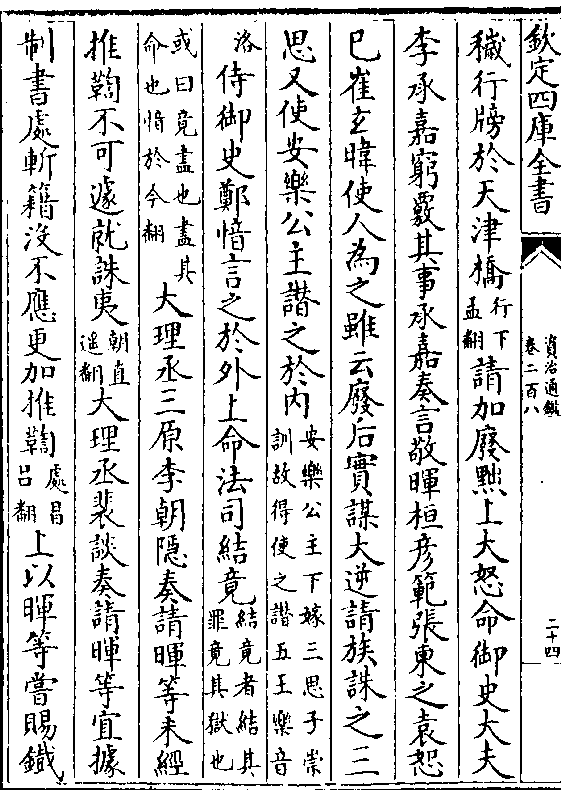 欽定四庫全書
資治通鑑
卷二百八
二十四
穢行牓於天津橋行下孟翻請加廢黜上大怒命御史大夫
李承嘉窮覈其事承嘉奏言敬暉桓彦範張柬之袁恕
已崔玄暐使人為之雖云廢后實謀大逆請族誅之三
思又使安樂公主譖之於内安樂公主下嫁三思子崇訓故得使之譖五王樂音
洛侍御史鄭愔言之於外上命法司結竟結竟者結其罪竟其獄也
或曰竟盡也盡其命也愔於今翻大理丞三原李朝隱奏請暉等未經
推鞫不可遽就誅夷朝直遥翻大理丞裴談奏請暉等宜據
制書處斬籍沒不應更加推鞫處昌吕翻上以暉等嘗賜鐵